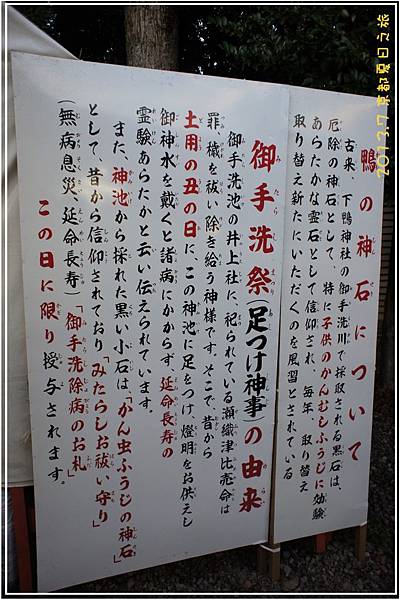 鴨の神石について
古来、下鴨神社の御手洗川で採取される黒石は、
厄除の神石として、特に子供のかんむしふうじに効験
あらたかな霊石として信仰され、毎年、取り替え
取り替え新たにいただくのを風習とされている
御手洗祭(足つけ神事)の由来
御手洗池の井上社に、祀られている瀬織津比売命は
罪、穢を祓い除き給う神様です。そこで昔から
土用の丑の日に、この神池に足をつけ、燈明をお供えし
御神水を戴くと諸病にかからず、延命長寿の
霊験あらたかと云い伝えられています。
また、神池から採れた黒い小石は「かん虫ふうじの神石」
として、昔から信仰されており「みたらしお祓い守り」
(無病息災、延命長寿)「御手洗除病のお札」
この日に限り授与されます。
2013.7.京都夏日之旅